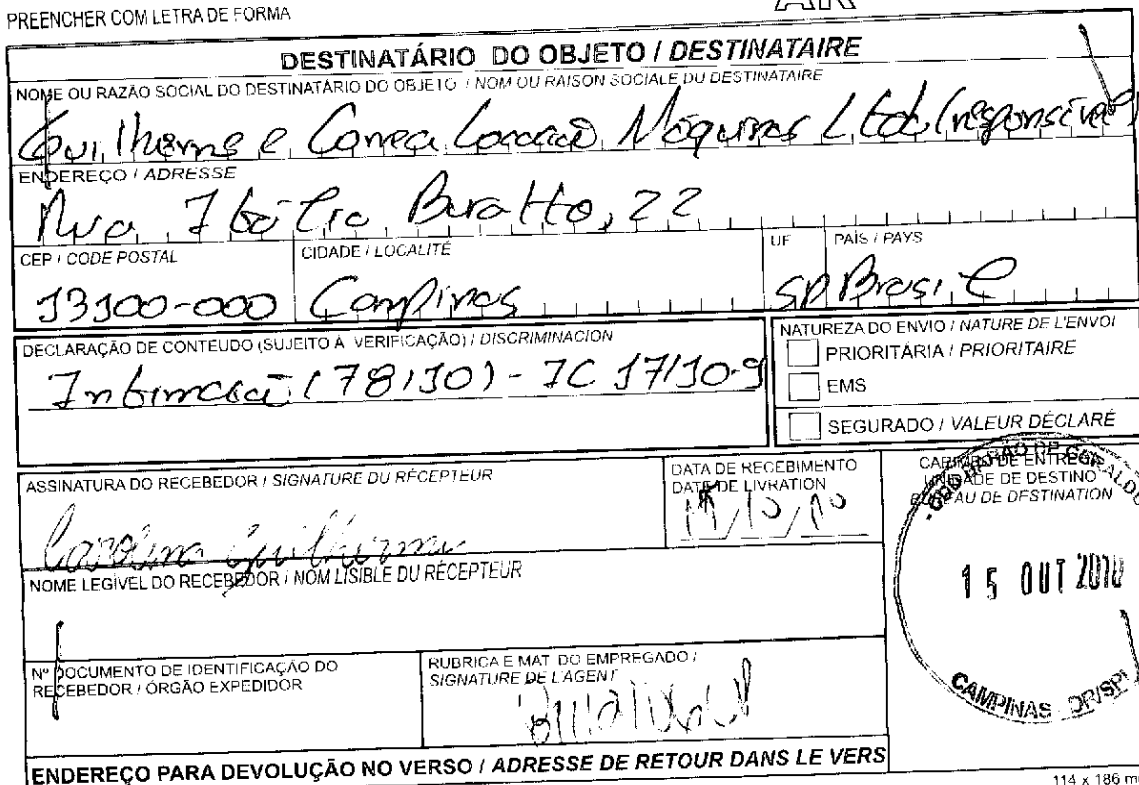 PREENCHER COM LETRA DE FORMA
AR
DESTINATÁRIO DO OBJETO / DESTINATAIRE
NOME OU RAZÃO SOCIAL DO DESTINATÁRIO DO OBJETO / NOM OU RAISON SOCIALE DU DESTINATAIRE
Guilherme e Correa Locação Máquinas Ltda (responsável)
ENDEREÇO / ADRESSE
Rua Itália Buratto, 22
CEP / CODE POSTAL CIDADE / LOCALITÉ UF PAÍS / PAYS
13100-000 Campinas SP Brasil
DECLARAÇÃO DE CONTEÚDO (SUJEITO À VERIFICAÇÃO) / DISCRIMINACION
Intimação (78/10) - IC 17/10-9
NATUREZA DO ENVIO / NATURE DE L'ENVOI
PRIORITÁRIA / PRIORITAIRE
EMS
SEGURADO / VALEUR DÉCLARÉ
ASSINATURA DO RECEBEDOR / SIGNATURE DU RÉCEPTEUR
Carolina Guilherme
DATA DE RECEBIMENTO
DATE DE LIVRATION
/10/10
CARIMBO DE ENTREGA
UNIDADE DE DESTINO
BUREAU DE DESTINATION
BARÃO DE GERALDO
15 OUT 2010
CAMPINAS DR/SPI
NOME LEGÍVEL DO RECEBEDOR / NOM LISIBLE DU RÉCEPTEUR
Nº DOCUMENTO DE IDENTIFICAÇÃO DO
RECEBEDOR / ÓRGÃO EXPEDIDOR
RUBRICA E MAT. DO EMPREGADO /
SIGNATURE DE L'AGENT
ENDEREÇO PARA DEVOLUÇÃO NO VERSO / ADRESSE DE RETOUR DANS LE VERS
114 x 186 m